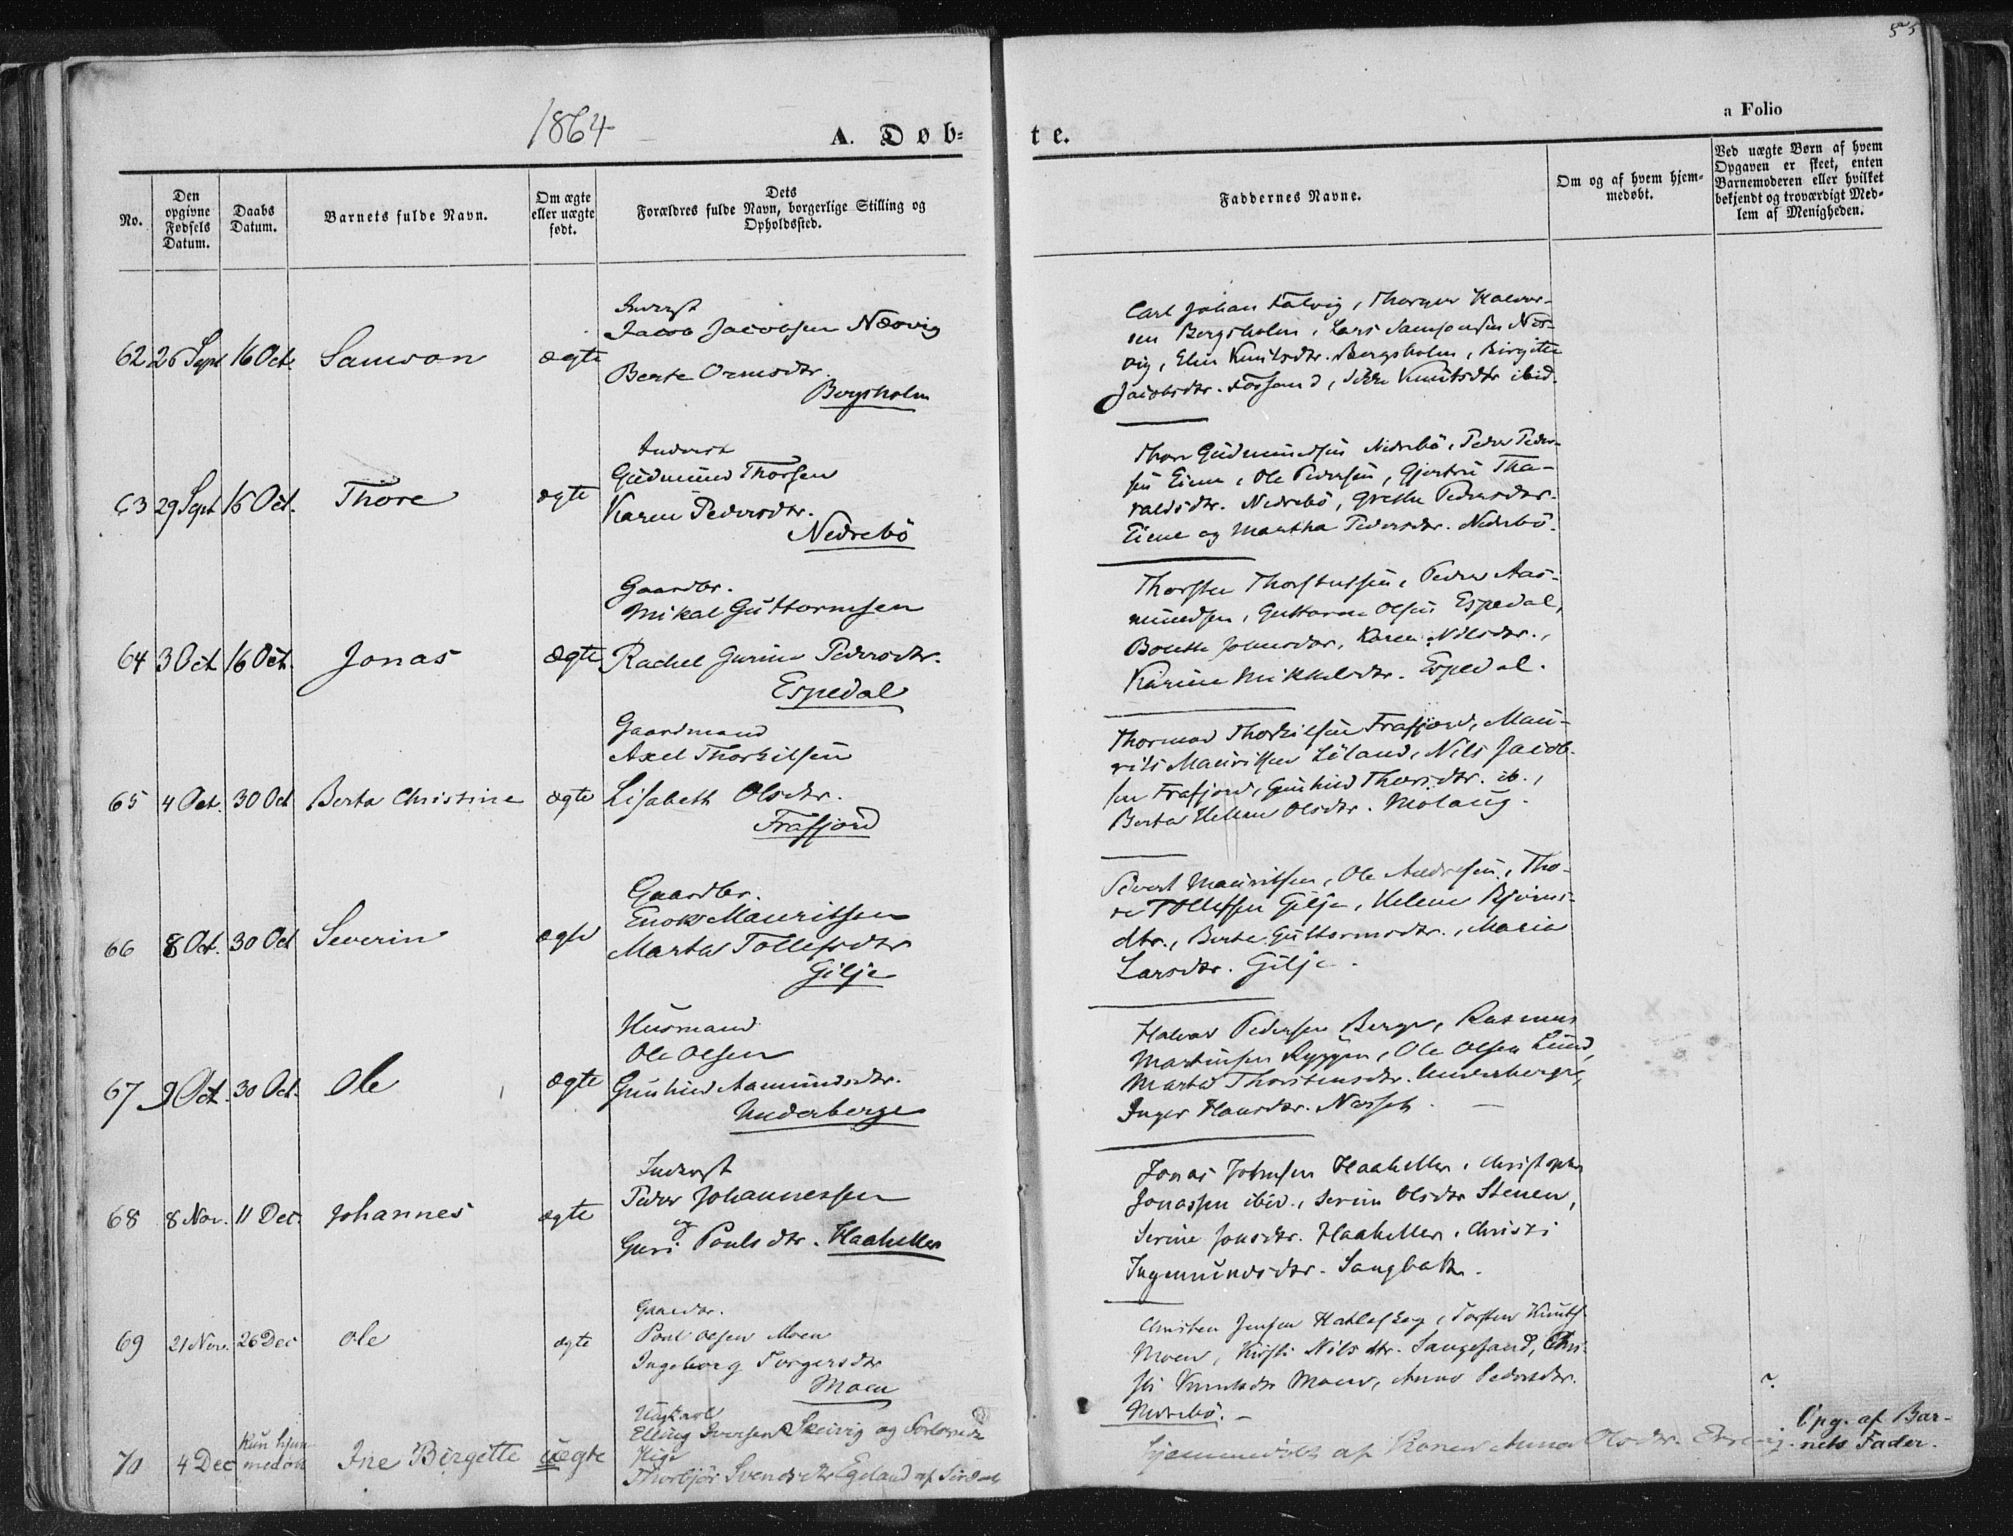 55
1864
a Folio
A. Døb-
te.
No.
Den opgivne Fødsels Datum.
Daabs Datum.
Barnets fulde Navn.
Om ægte eller uægte født.
Dets Forældres fulde Navn, borgerlige Stilling og Opholdssted.
Faddernes Navne.
Om og af hvem hjemmedøbt.
Ved uægte Børn af hvem Opgaven er skeet, enten Barnemoderen eller hvilket bekjendt og troværdigt Medlem af Menigheden.
62 26 Sept 16 Oct. Samson ægte
Inderst
Jacob Jacobsen Næsvig
Berte Ormsdtr.
Bergsholm
Carl Johan Kalvig, Thorger Halvor-
sen Bergsholm, Lars Samsonsen Næs-
vig, Elin Knutsdtr. Bergsholm, Birgitte
Jacobsdtr. Fossand, Knutsdtr ibid.
63 29 Sept 16 Oct. Thore ægte
Inderst
Gudmund Thorsen
Karen Pedersdtr.
Nedrebö
Thore Gudmundsen Nedrebö, Peder Peder-
sen Eiene, Ole Pedersen, Gjertru Tha-
raldsdtr. Nedrebö, Grethe Pedersdtr.
Eiene og Martha Pedersdtr. Nedrebö.
64 3 Oct 16 Oct. Jonas ægte
Gaardbr.
Mikal Guttormsen
Rachel Gurine Pedersdtr.
Espedal
Thorsten Thorstensen, Peder Aas-
mundsen, Guttorm Olsen Espedal,
Johnsdtr, Karen Nilsdtr.,
Karine Mikkelsdtr. Espedal.
65 4 Oct. 30 Oct Berta Christine ægte
Gaardmand
Axel Thorkilsen
Lisabeth Olsdtr.
Frafjord
Thormod Thorkilsen Frafjord, Mau-
rits Mauritsen Löland, Nils Jacob-
sen Frafjord, Gunhild Thorsdtr. ib.,
Berta Helene Olsdtr. Molaug.
66 8 Oct. 30 Oct Severin ægte
Gaardbr.
Enok Mauritsen
Marta Tollefsdtr
Gilje
Sivert Mauritsen, Ole Andresen, Tho-
re Tollefsen Gilje, Helene Bjørns-
dtr., Berte Guttormsdtr., Maria
Larsdtr. Gilje.
67 9 Oct. 30 Oct. Ole ægte
Husmand
Ole Olsen
Gunhild Aamundsdtr.
Underberge
Halvor Pedersen Berge, Rasmus
Martinsen Ryggen, Ole Olsen Lund,
Marta Thorstensdtr. Underberge,
Inger Hansdtr. Næsset. —
68 8 Nov. 11 Dec. Johannes ægte
Inderst
Peder Johannessen
og
Guri Poulsdtr. Haaheller
Jonas Johnsen Haaheller, Christopher
Jonassen ibid., Serine Olsdtr Stenen,
Serine Jonsdtr. Haaheller, Christi
Ingemundsdtr. Sangbak.
69 21 Nov. 26 Dec Ole ægte
Gaardbr.
Poul Olsen Moen
Ingeborg Torgersdtr
Moen
Christen Jensen, Torsten Knuts.
Moen, Kirsti Nilsdtr. Sangesand, Chri-
sti Knutsdtr Moen, Anna Pedersdtr.
Nedrebö. —
70 4 Dec kun hjem- medøbt Ine Birgitte uægte
Ungkarl
Elling Iversen Skeivig og Forlovede
Pige
Thorbjør Svendsdtr Egeland af Sirdal
hjemmedøbt af Konen Anna Olsdtr.
Opg. af Bar-
nets Fader.